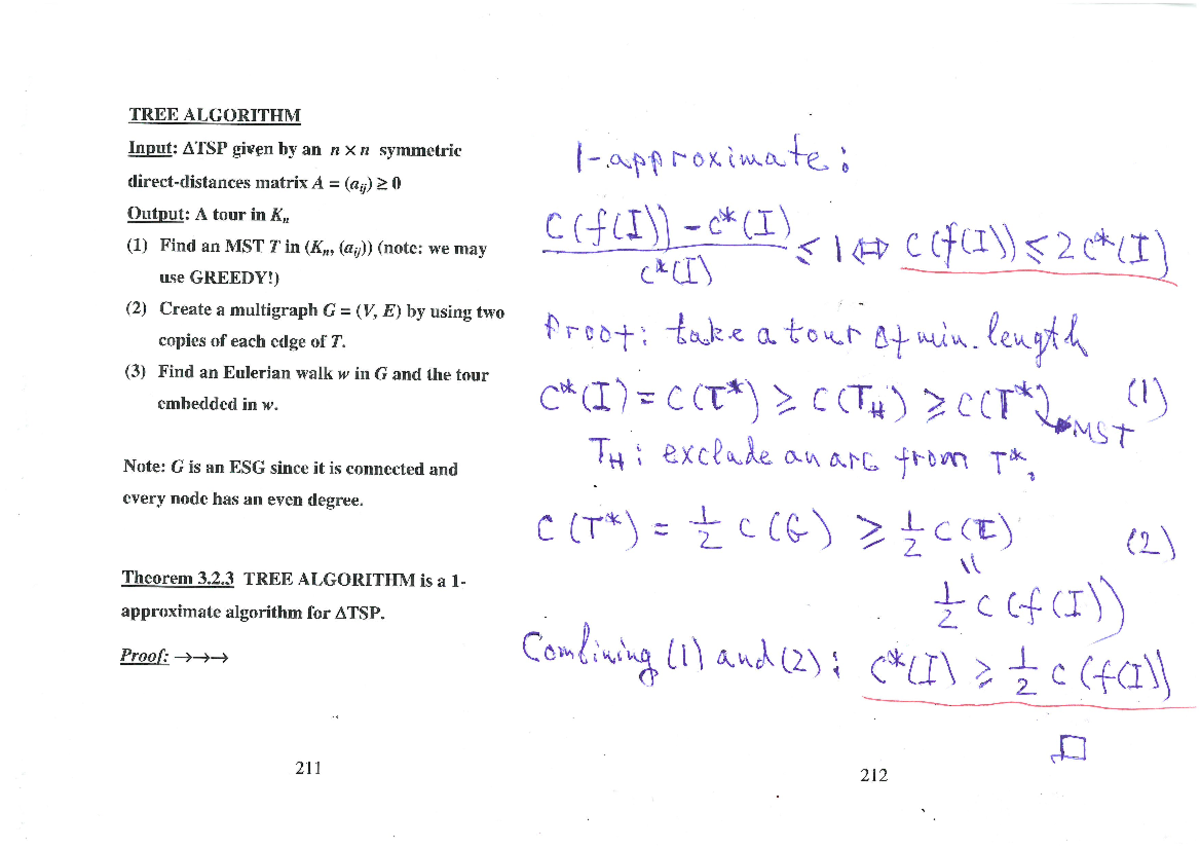 TREE ALGORITHM
Input: ΔTSP given by an n × n symmetric
direct-distances matrix A = (aᵢⱼ) ≥ 0
Output: A tour in Kₙ
(1) Find an MST T in (Kₙ, (aᵢⱼ)) (note: we may
use GREEDY!)
(2) Create a multigraph G = (V, E) by using two
copies of each edge of T.
(3) Find an Eulerian walk w in G and the tour
embedded in w.
Note: G is an ESG since it is connected and
every node has an even degree.
Theorem 3.2.3 TREE ALGORITHM is a 1-
approximate algorithm for ΔTSP.
Proof: →→→
211
1-approximate:
(c(f(I)) - c*(I)) / c*(I) ≤ 1 ⇔ c(f(I)) ≤ 2c*(I)
Proof: take a tour of min. length
c*(I) = c(τ*) ≥ c(T_H) ≥ c(T*) → MST (1)
T_H: exclude an arc from τ*.
c(T*) = 1/2 c(G) ≥ 1/2 c(τ) (2)
=
1/2 c(f(I))
Combining (1) and (2): c*(I) ≥ 1/2 c(f(I))
□
212